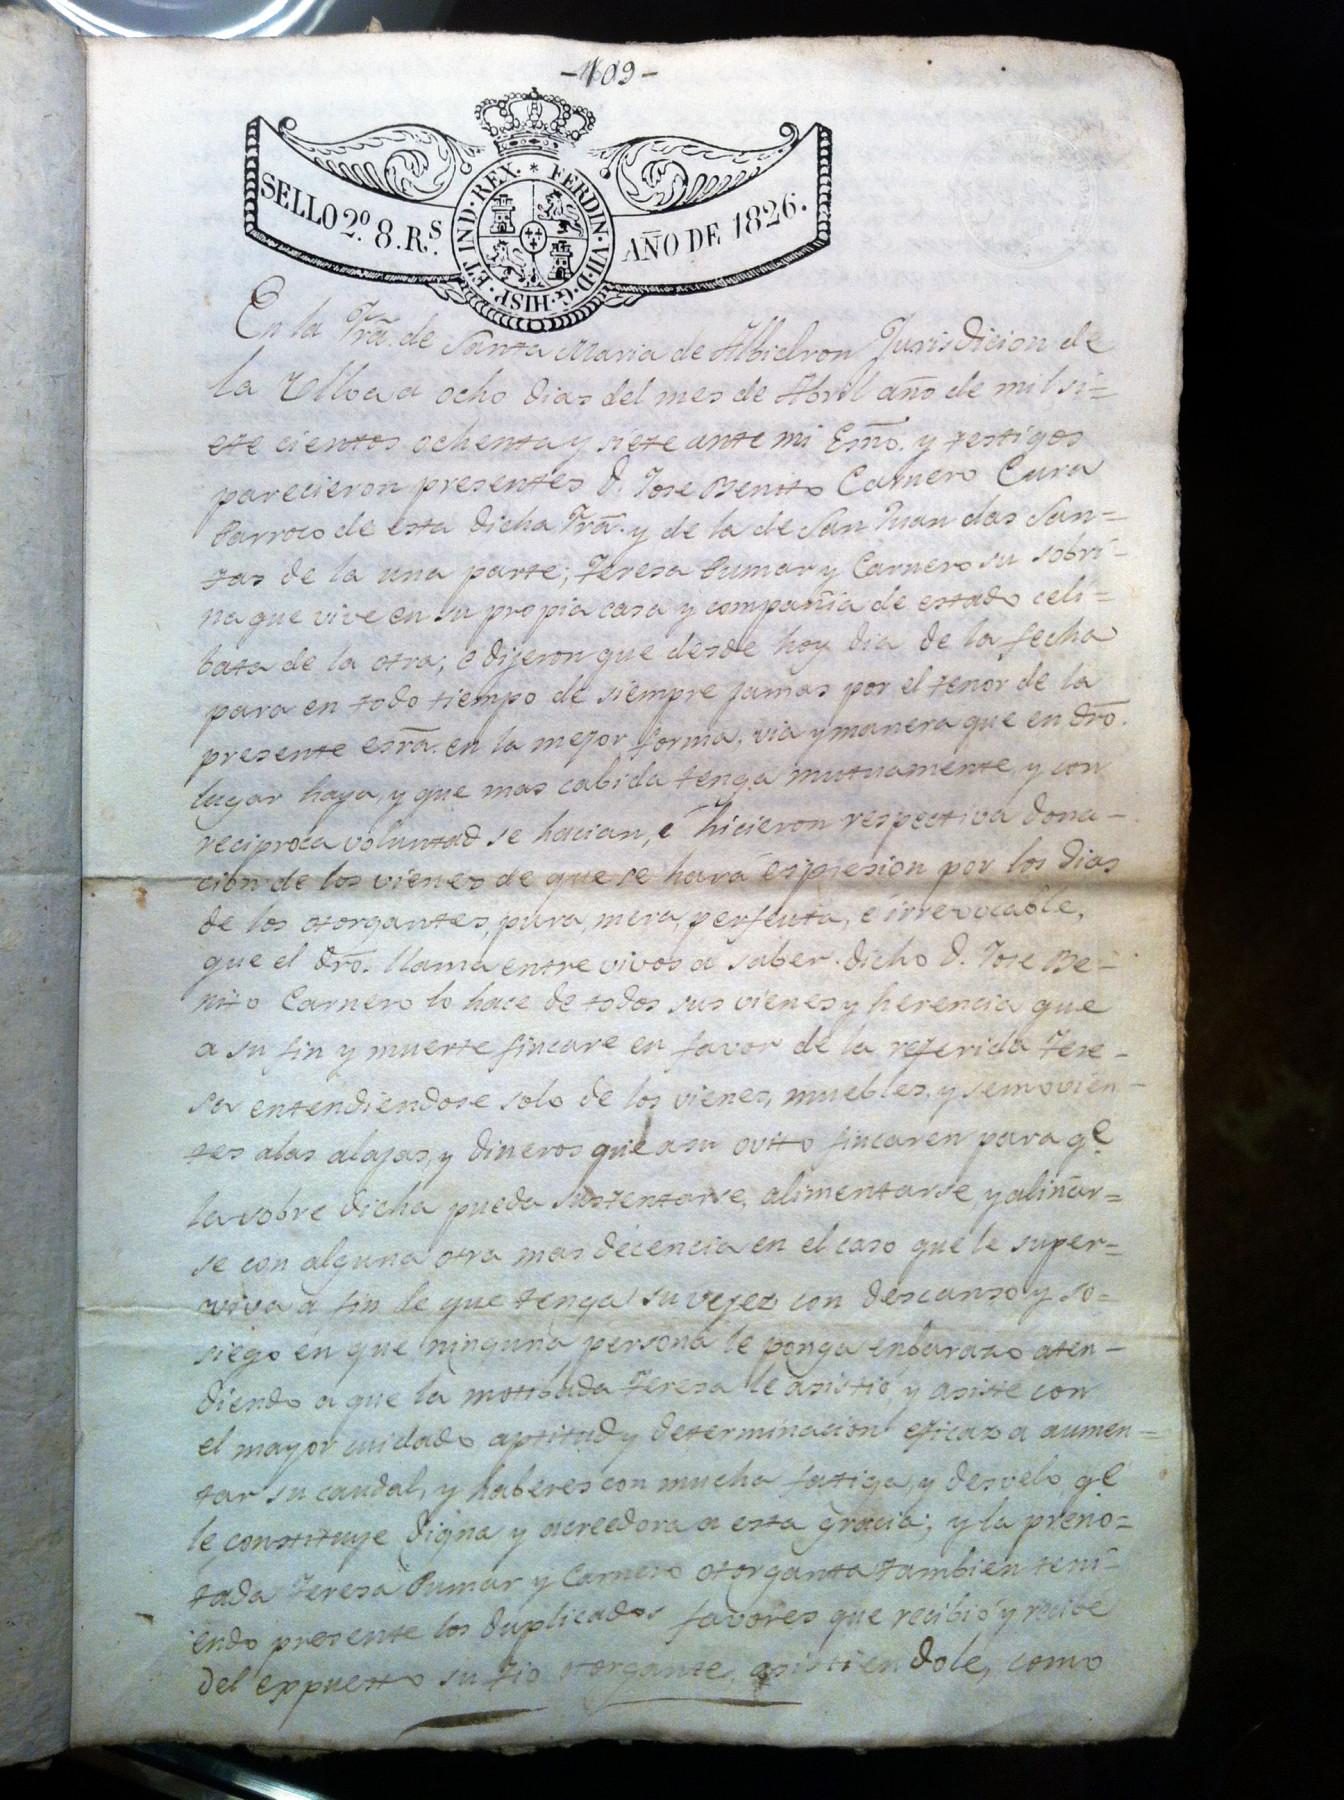 -109-
SELLO 2º. 8. R.S AÑO DE 1826.
FERDIN·VII·D·G·HISP·ET IND·REX·
En la Frã. de Santa Maria de Albidron Jurisdicion de
la Ulloa a ocho dias del mes de Abril año de mil si=
ete cientos ochenta y siete ante mi Esño. y testigos
parecieron presentes D. Jose Benito Carnero Cura
Parroco de esta dicha Frã. y de la de San Juan das San=
tas de la una parte; Teresa Pumar y Carnero su sobri-
na que vive en su propia casa y compañia de estado celi=
bata de la otra; e dijeron que desde hoy dia de la fecha
para en todo tiempo de siempre jamas por el tenor de la
presente esrã. en la mejor forma, via y manera que en drõ.
lugar haya, y que mas cabida tenga mutuamente, y con
reciproca voluntad se hacian, e hicieron respectiva dona-
cion de los vienes de que se hará espresion por los dias
de los otorgantes, pura, mera, perfeuta, e irrevocable,
que el drõ. llama entre vivos a saber. dicho D. Jose Be-
nito Carnero lo hace de todos sus vienes y herencia que
a su fin y muerte fincare en favor de la referida Tere-
sa entendiendose solo de los vienes, muebles, y semovien-
tes alas alajas, y dineros que a su ovito fincaren para qe
la sobre dicha pueda sustentarse, alimentarse, y aliñar=
se con alguna otra mas decencia en el caso que le super=
viva a fin de que tenga su vejez con descanso y so=
siego en que ninguna persona le ponga enbarazo aten-
diendo a que la motibada Teresa le asistió, y asiste con
el mayor cuidado aptitud y determinacion eficaz a aumen=
tar su caudal, y haberes con mucha fatiga, y desvelo qe
le constituye digna y acreedora a esta gracia; y la preno=
tada Teresa Pumar y Carnero otorganta tambien teni-
endo presente los duplicados favores que recibió y recibe
del exppuesto su tio otorgante, asistiendole, como